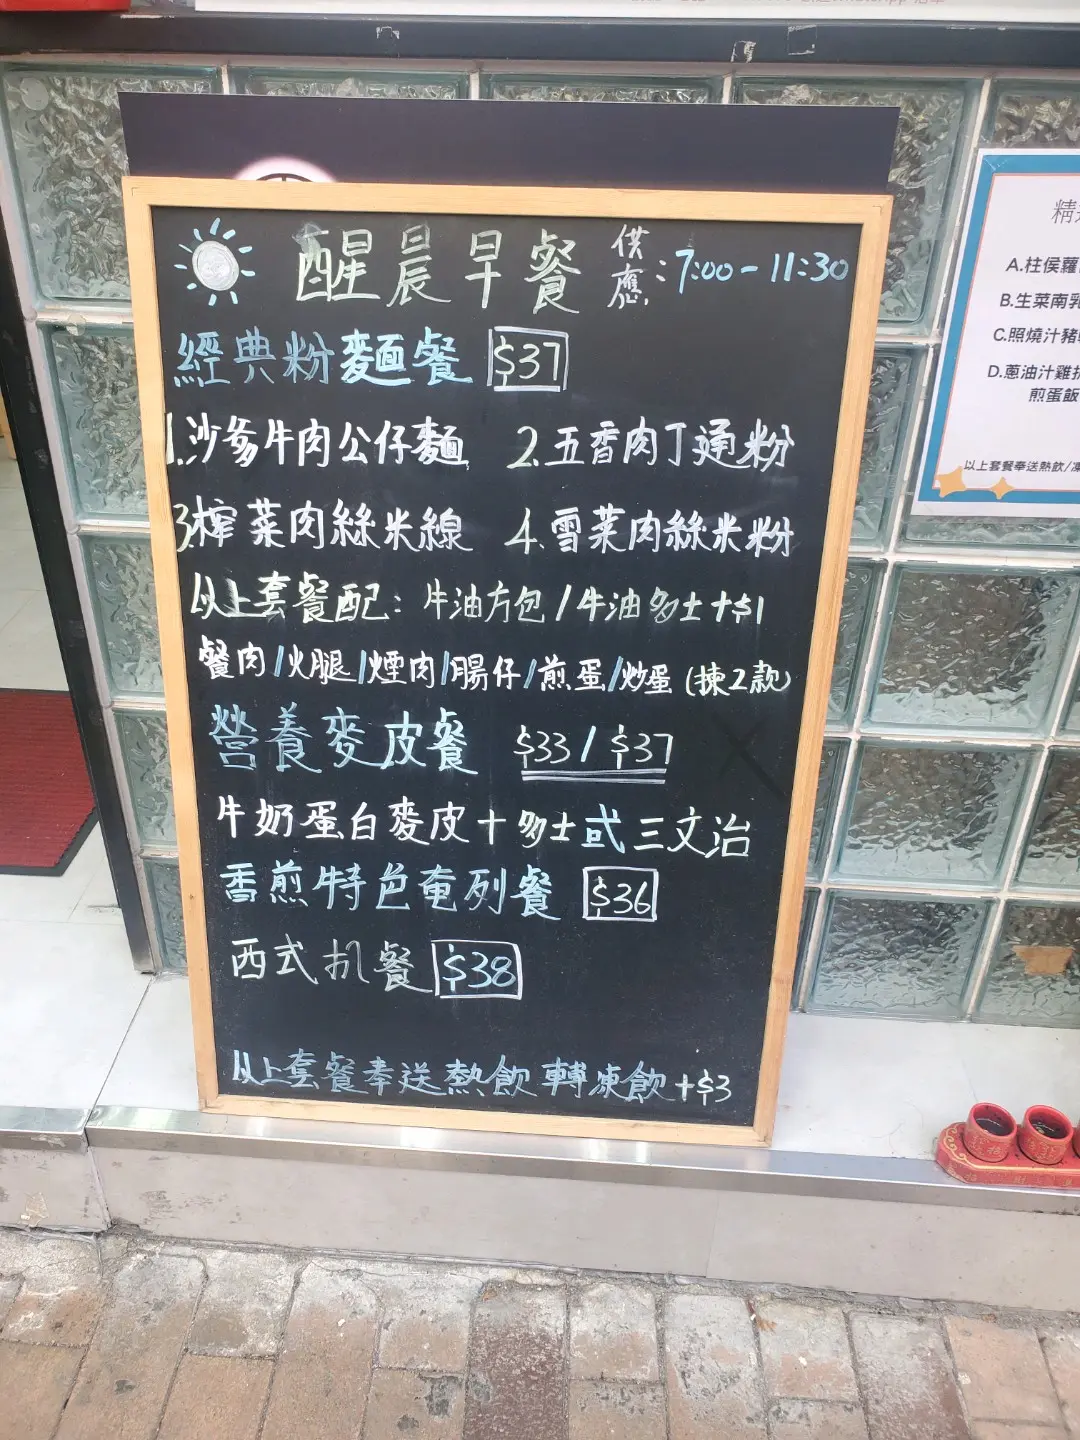 醒晨早餐 供應：7:00-11:30
經典粉麵餐 $37
1.沙爹牛肉公仔麵 2.五香肉丁通粉
3.榨菜肉絲米線 4.雪菜肉絲米粉
以上套餐配：牛油方包/牛油多士+$1
餐肉/火腿/煙肉/腸仔/煎蛋/炒蛋(揀2款)
營養麥皮餐 $33/$37
牛奶蛋白麥皮+多士或三文治
香煎特色奄列餐 $36
西式扒餐 $38
以上套餐奉送熱飲 轉凍飲+$3
A.柱侯蘿
B.生菜南乳
C.照燒汁豬
D.蔥油汁雞扒
煎蛋飯
以上套餐奉送熱飲/凍